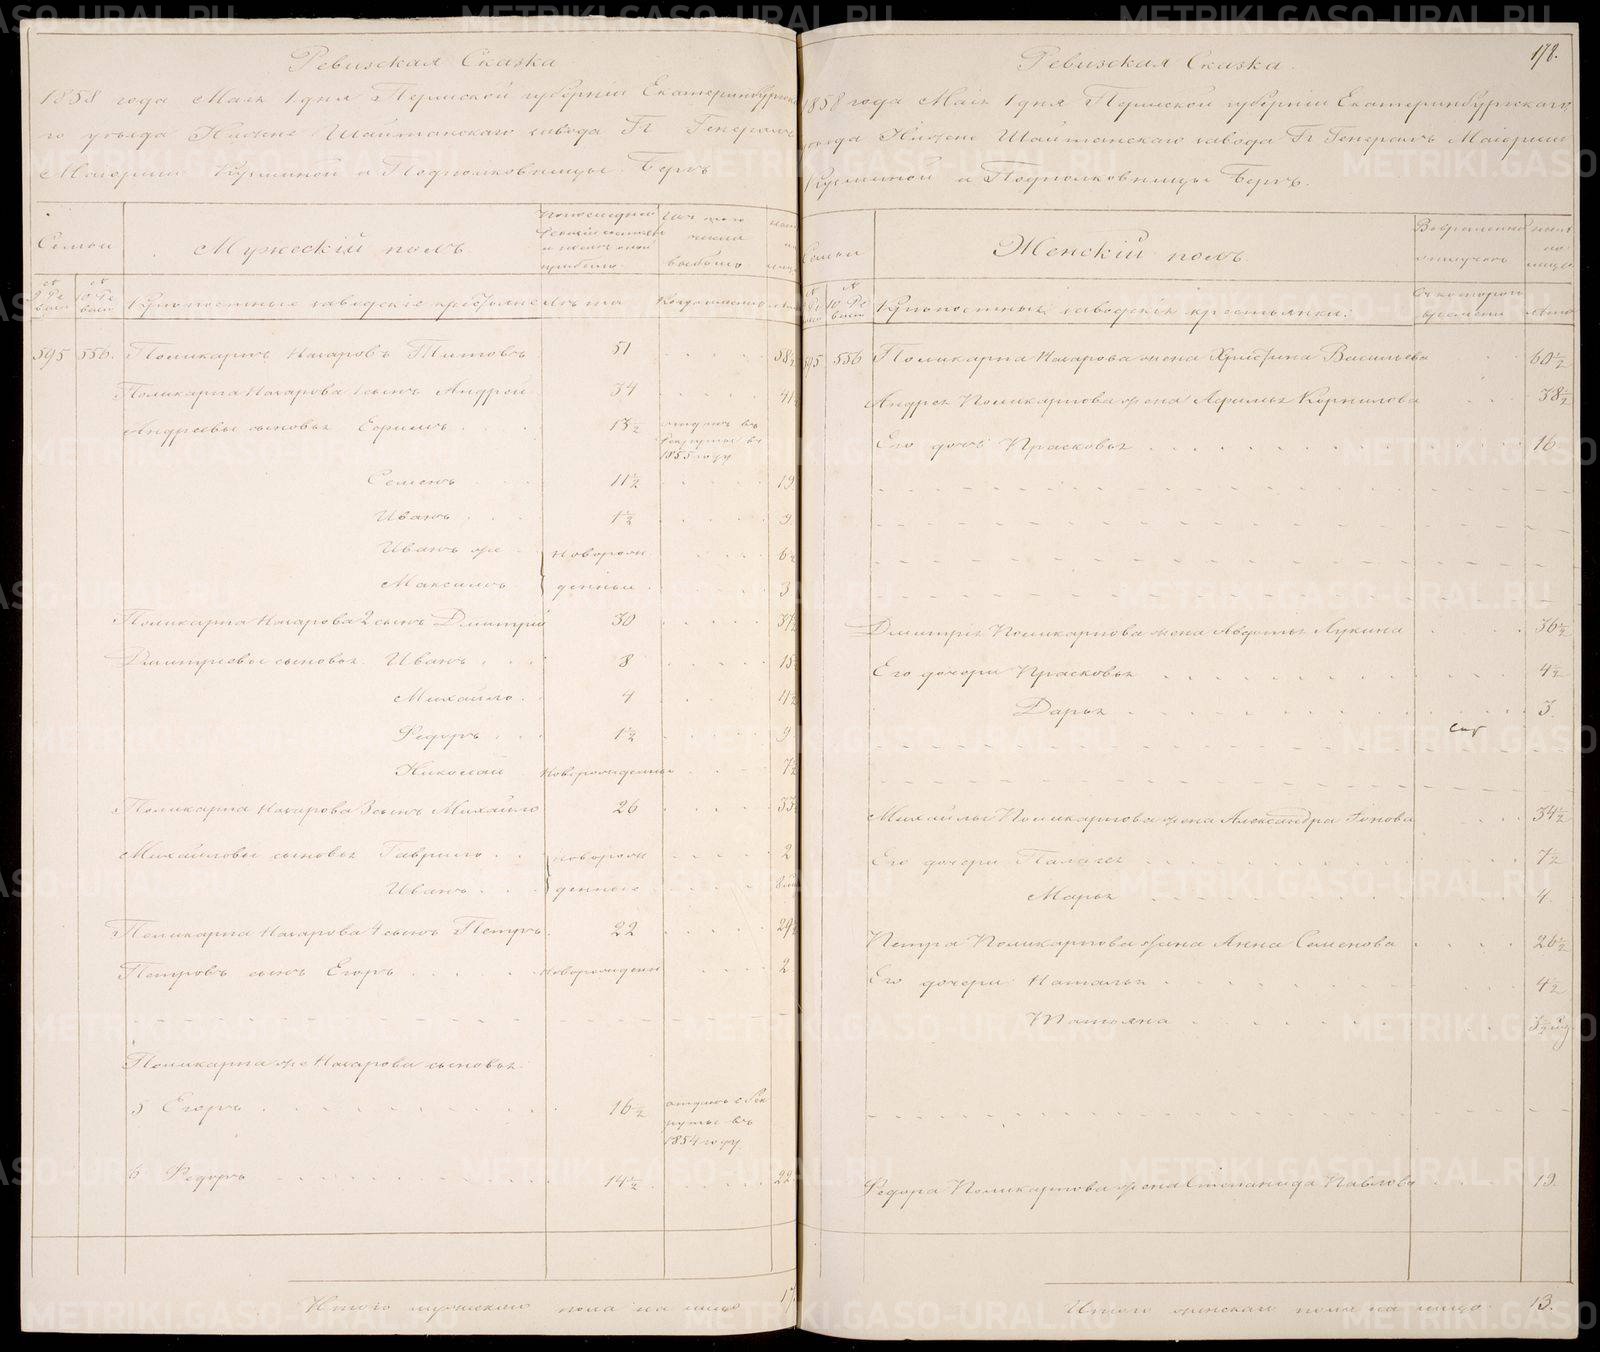 Ревизская Сказка
1858 года Маія 1 дня Пермской губерніи Екатеринбургска
го уезда Нижне Шайтанскаго завода Гг Генералъ
Маіорши Кузьминой и Подполковницы Бергъ
Семьи
Мужескій полъ
Крепостные заводскіе крестьяне
Лета
595 556. Поликарпъ Назаровъ Титовъ 51 58½
Поликарпа Назарова 1 сынъ Андрей 34 41½
Андреевы сыновья Ефимъ 13½ отданъ въ
рекруты въ
1855 году
Семенъ 11½ 19
Иванъ 1½ 9
Иванъ же новорож 6½
Максимъ денныи 3
Поликарпа Назарова 2 сынъ Дмитрій 30 37½
Дмитріевы сыновья Иванъ 8 15½
Михайло 4 11½
Федоръ 1½ 9
Николай Новорожденны 7½
Поликарпа Назарова 3 сынъ Михайло 26 33½
Михайловы сыновья Гаврило новорож 2
Иванъ денные
Поликарпа Назарова 4 сынъ Петръ 22 29½
Петровъ сынъ Егоръ Новорожден 2
Поликарпа же Назарова сыновья
5 Егоръ 16½ отданъ в Рек
руты въ
1854 году
6 Федоръ 14½ 22
Итого мужескаго пола на лицо 17
178.
Ревизская Сказка.
1858 года Маія 1 дня Пермской губерніи Екатеринбургскаго
уезда Нижне Шайтанскаго завода Гг Генералъ Маіорши
Кузьминой и Подполковницы Бергъ.
Семьи
Женскій полъ
Крепостныя заводскія крестьянки:
Лета
595 556 Поликарпа Назарова жена Христина Васильева 60½
Андрея Поликарпова жена Афимья Корнилова 38½
Его дочь Прасковья 16
Дмитрія Поликарпова жена Авдотья Лукина 36½
Его дочери Прасковья 4½
Дарья 3
Михайлы Поликарпова жена Александра Іонова 34½
Его дочери Палагея 7½
Марья 4
Петра Поликарпова жена Анна Семенова 26½
Его дочери Наталья 4½
Татьяна
Федора Поликарпова жена Степанида Павлова 19
Итого женскаго пола на лицо 13.
METRIKI.GASO-URAL.RU